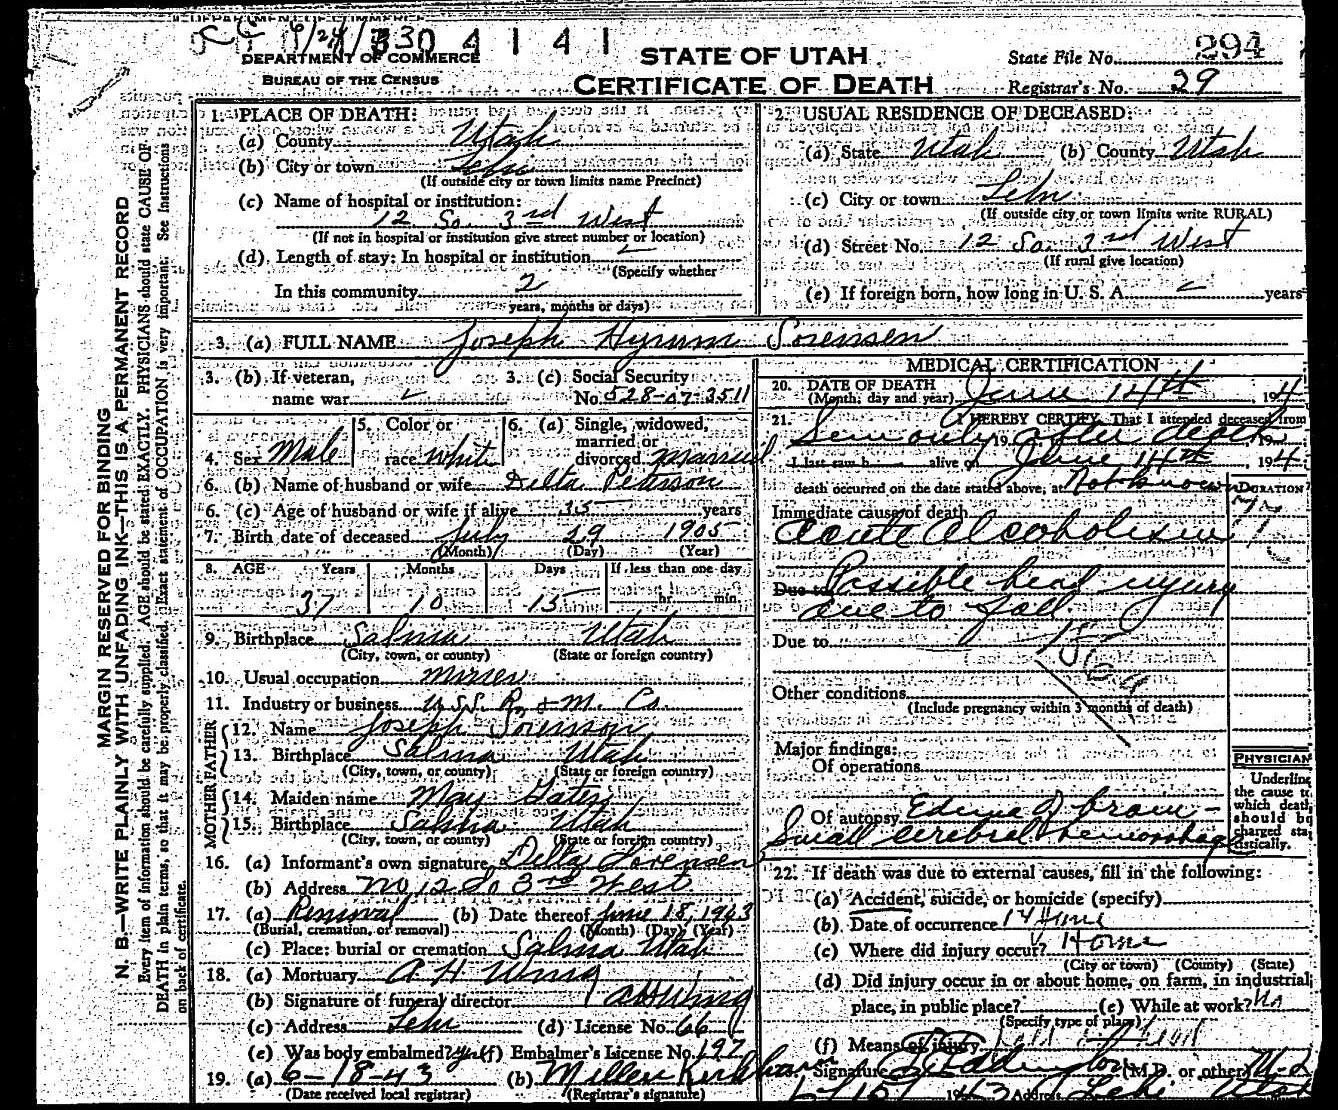 6/24/
3 0 4 1 4 1
DEPARTMENT OF COMMERCE
BUREAU OF THE CENSUS
STATE OF UTAH
CERTIFICATE OF DEATH
State File No. 294
Registrar's No. 29
MARGIN RESERVED FOR BINDING
N. B.—WRITE PLAINLY WITH UNFADING INK—THIS IS A PERMANENT RECORD
Every item of information should be carefully supplied. AGE should be stated EXACTLY. PHYSICIANS should state CAUSE OF
DEATH in plain terms, so that it may be properly classified. Exact statement of OCCUPATION is very important. See Instructions
on back of certificate.
1. PLACE OF DEATH:
(a) County Utah
(b) City or town Lehi
(If outside city or town limits name Precinct)
(c) Name of hospital or institution:
12 So. 3rd West
(If not in hospital or institution give street number or location)
(d) Length of stay: In hospital or institution
(Specify whether
In this community 2
years, months or days)
2. USUAL RESIDENCE OF DECEASED:
(a) State Utah (b) County Utah
(c) City or town Lehi
(If outside city or town limits write RURAL)
(d) Street No. 12 So. 3rd West
(If rural give location)
(e) If foreign born, how long in U. S. A. years
3. (a) FULL NAME Joseph Hyrum Sorensen
3. (b) If veteran, name war
3. (c) Social Security No. 528-07-3511
4. Sex Male
5. Color or race White
6. (a) Single, widowed, married or divorced Married
6. (b) Name of husband or wife Delta Pearson
6. (c) Age of husband or wife if alive 35 years
7. Birth date of deceased July 29 1905
(Month) (Day) (Year)
8. AGE Years Months Days If less than one day
37 10 15 hr. min.
9. Birthplace Salina Utah
(City, town, or county) (State or foreign country)
10. Usual occupation Miner
11. Industry or business U.S.S. R. & M. Co.
FATHER
12. Name Joseph Sorenson
13. Birthplace Salina Utah
(City, town, or county) (State or foreign country)
MOTHER
14. Maiden name May Gates
15. Birthplace Salina Utah
(City, town, or county) (State or foreign country)
16. (a) Informant's own signature Sorensen
(b) Address No. 12 So 3rd West
17. (a) Removal (b) Date thereof June 18, 1943
(Burial, cremation, or removal) (Month) (Day) (Year)
(c) Place: burial or cremation Salina Utah
18. (a) Mortuary A H Wing
(b) Signature of funeral director A H Wing
(c) Address Lehi (d) License No. 66
(e) Was body embalmed? yes (f) Embalmer's License No. 197
19. (a) 6-18-43 (b) Kirkham
(Date received local registrar) (Registrar's signature)
MEDICAL CERTIFICATION
20. DATE OF DEATH
(Month, day and year) June 14th, 194
21. I HEREBY CERTIFY, That I attended deceased from
Seen only 19 after death 19
I last saw h alive on June 14th, 194
death occurred on the date stated above, at Not known
DURATION
Immediate cause of death
acute alcoholism
Due to Possible head injury
due to fall.
Due to
Other conditions
(Include pregnancy within 3 months of death)
Major findings:
Of operations
Of autopsy Edema of brain -
Small cerebral hemorrhage
PHYSICIAN
Underline
the cause to
which death
should be
charged sta-
tistically.
22. If death was due to external causes, fill in the following:
(a) Accident, suicide, or homicide (specify)
(b) Date of occurrence 14 June
(c) Where did injury occur? Home
(City or town) (County) (State)
(d) Did injury occur in or about home, on farm, in industrial
place, in public place? (e) While at work? No
(Specify type of place)
(f) Means of injury
Signature (M.D. or other) M.D.
Address Lehi Utah